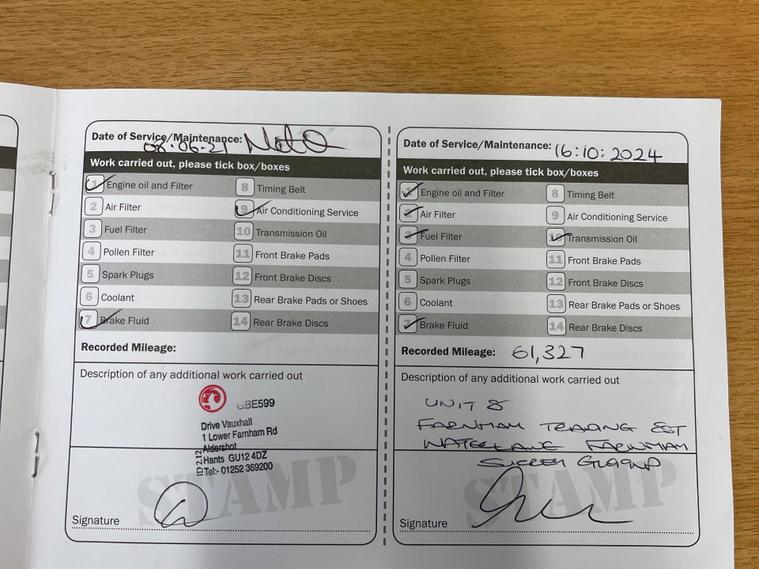 Date of Service/Maintenance:
08.06.21
Work carried out, please tick box/boxes
1 Engine oil and Filter
8 Timing Belt
2 Air Filter
9 Air Conditioning Service
3 Fuel Filter
10 Transmission Oil
4 Pollen Filter
11 Front Brake Pads
5 Spark Plugs
12 Front Brake Discs
6 Coolant
13 Rear Brake Pads or Shoes
7 Brake Fluid
14 Rear Brake Discs
Recorded Mileage:
Description of any additional work carried out
GBE599
Drive Vauxhall
1 Lower Farnham Rd
Aldershot
Hants GU12 4DZ
Tel:- 01252 369200
STAMP
Signature
Date of Service/Maintenance: 16:10:2024
Work carried out, please tick box/boxes
1 Engine oil and Filter
8 Timing Belt
2 Air Filter
9 Air Conditioning Service
3 Fuel Filter
10 Transmission Oil
4 Pollen Filter
11 Front Brake Pads
5 Spark Plugs
12 Front Brake Discs
6 Coolant
13 Rear Brake Pads or Shoes
7 Brake Fluid
14 Rear Brake Discs
Recorded Mileage: 61,327
Description of any additional work carried out
UNIT 8
FARNHAM TRADING EST
WATER LANE FARNHAM
STAMP
Signature